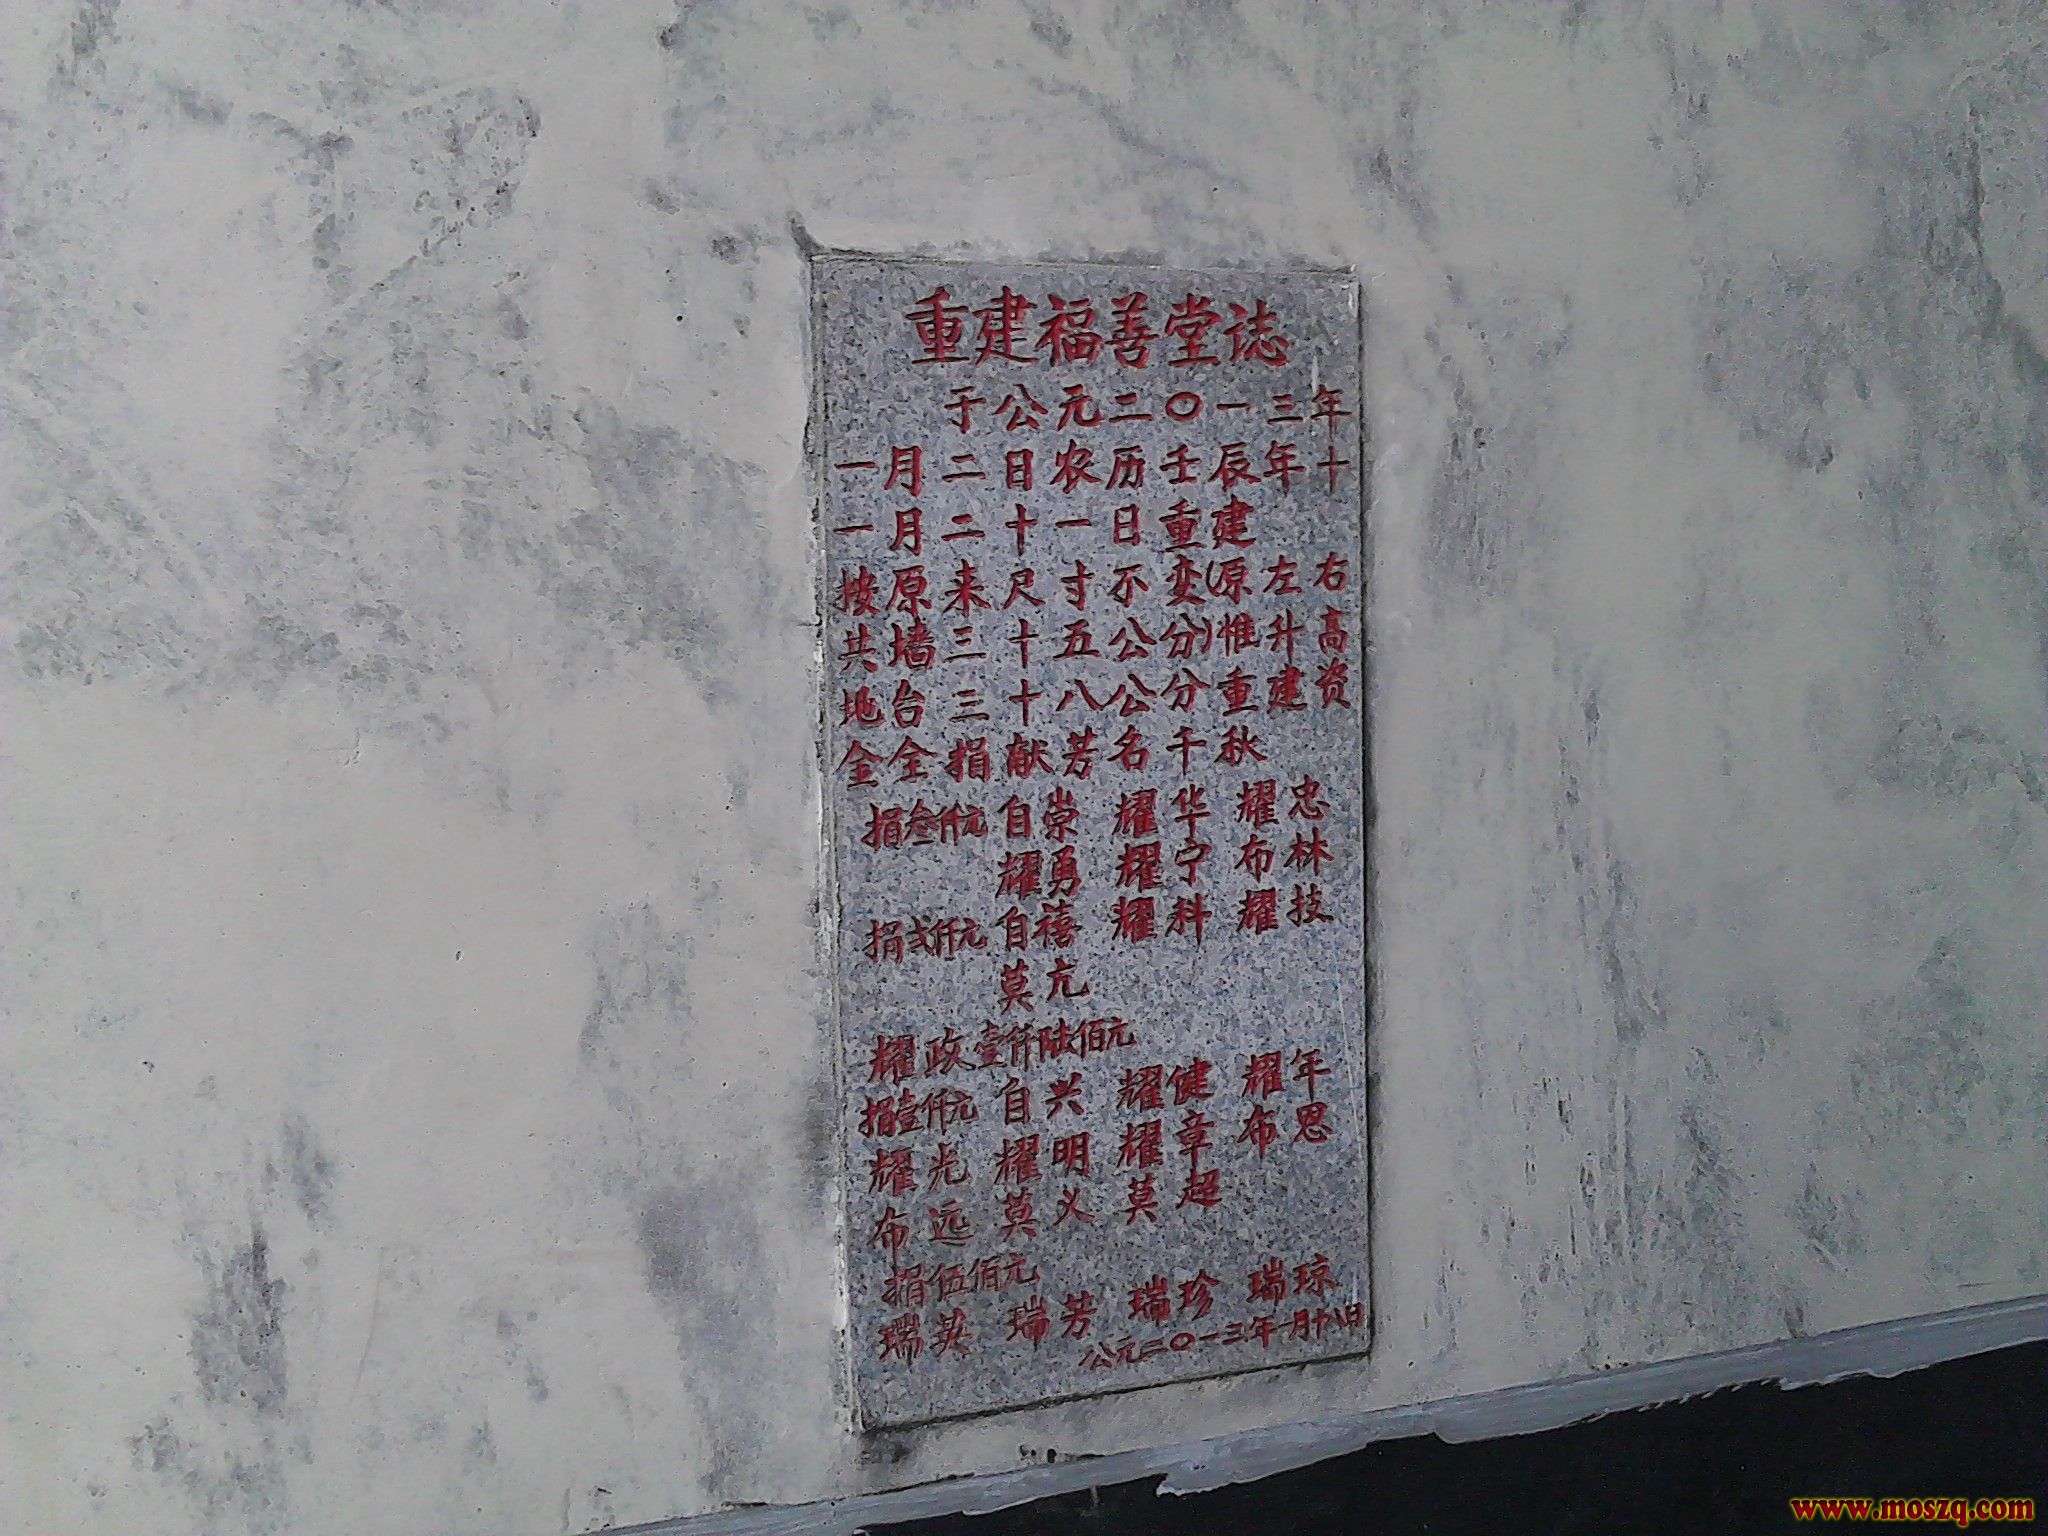 重建福善堂誌
于公元二〇一三年
一月二日农历壬辰年十
一月二十一日重建
按原来尺寸不变(原左右
共墙三十五公分)惟升高
地台三十八公分重建资
金全捐献芳名千秋
捐叁仟元 自崇 耀华 耀忠
耀勇 耀宁 布林
捐弍仟元 自禧 耀科 耀技
莫亢
耀政壹仟陆佰元
捐壹仟元 自兴 耀健 耀年
耀光 耀明 耀章 布恩
布远 莫义 莫超
捐伍佰元
瑞英 瑞芳 瑞珍 瑞琼
公元二〇一三年一月十八日
www.moszq.com